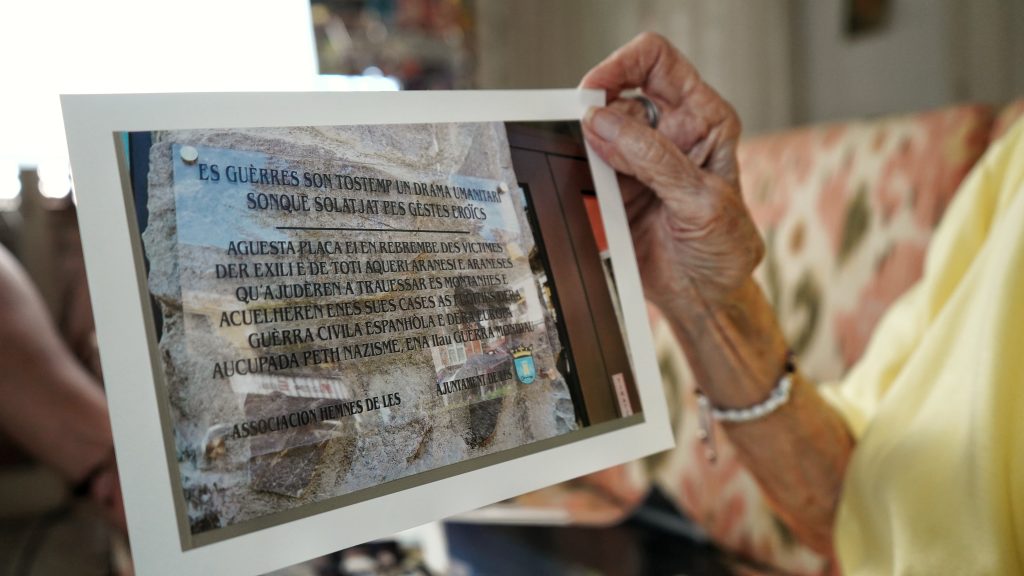 ES GUÈRRES SON TOSTEMP UN DRAMA UMANITARI
SONQUE SOLATJAT PES GÈSTES EROÏCS
AGUESTA PLAÇA EI EN REBREMBE DES VICTIMES
DER EXILI E DE TOTI AQUERI ARANESI E ARANESES
QU'AJUDÈREN A TRAUESSAR ES MONTANHES E
ACUELHEREN ENES SUES CASES AS
GUÈRRA CIVILA ESPANHOLA E DER EUROPA
AUCUPADA PETH NAZISME, ENA IIau GUÈRRA MONDIAU
AJUNTAMENT DE LES
ASSOCIACION HEMNES DE LES